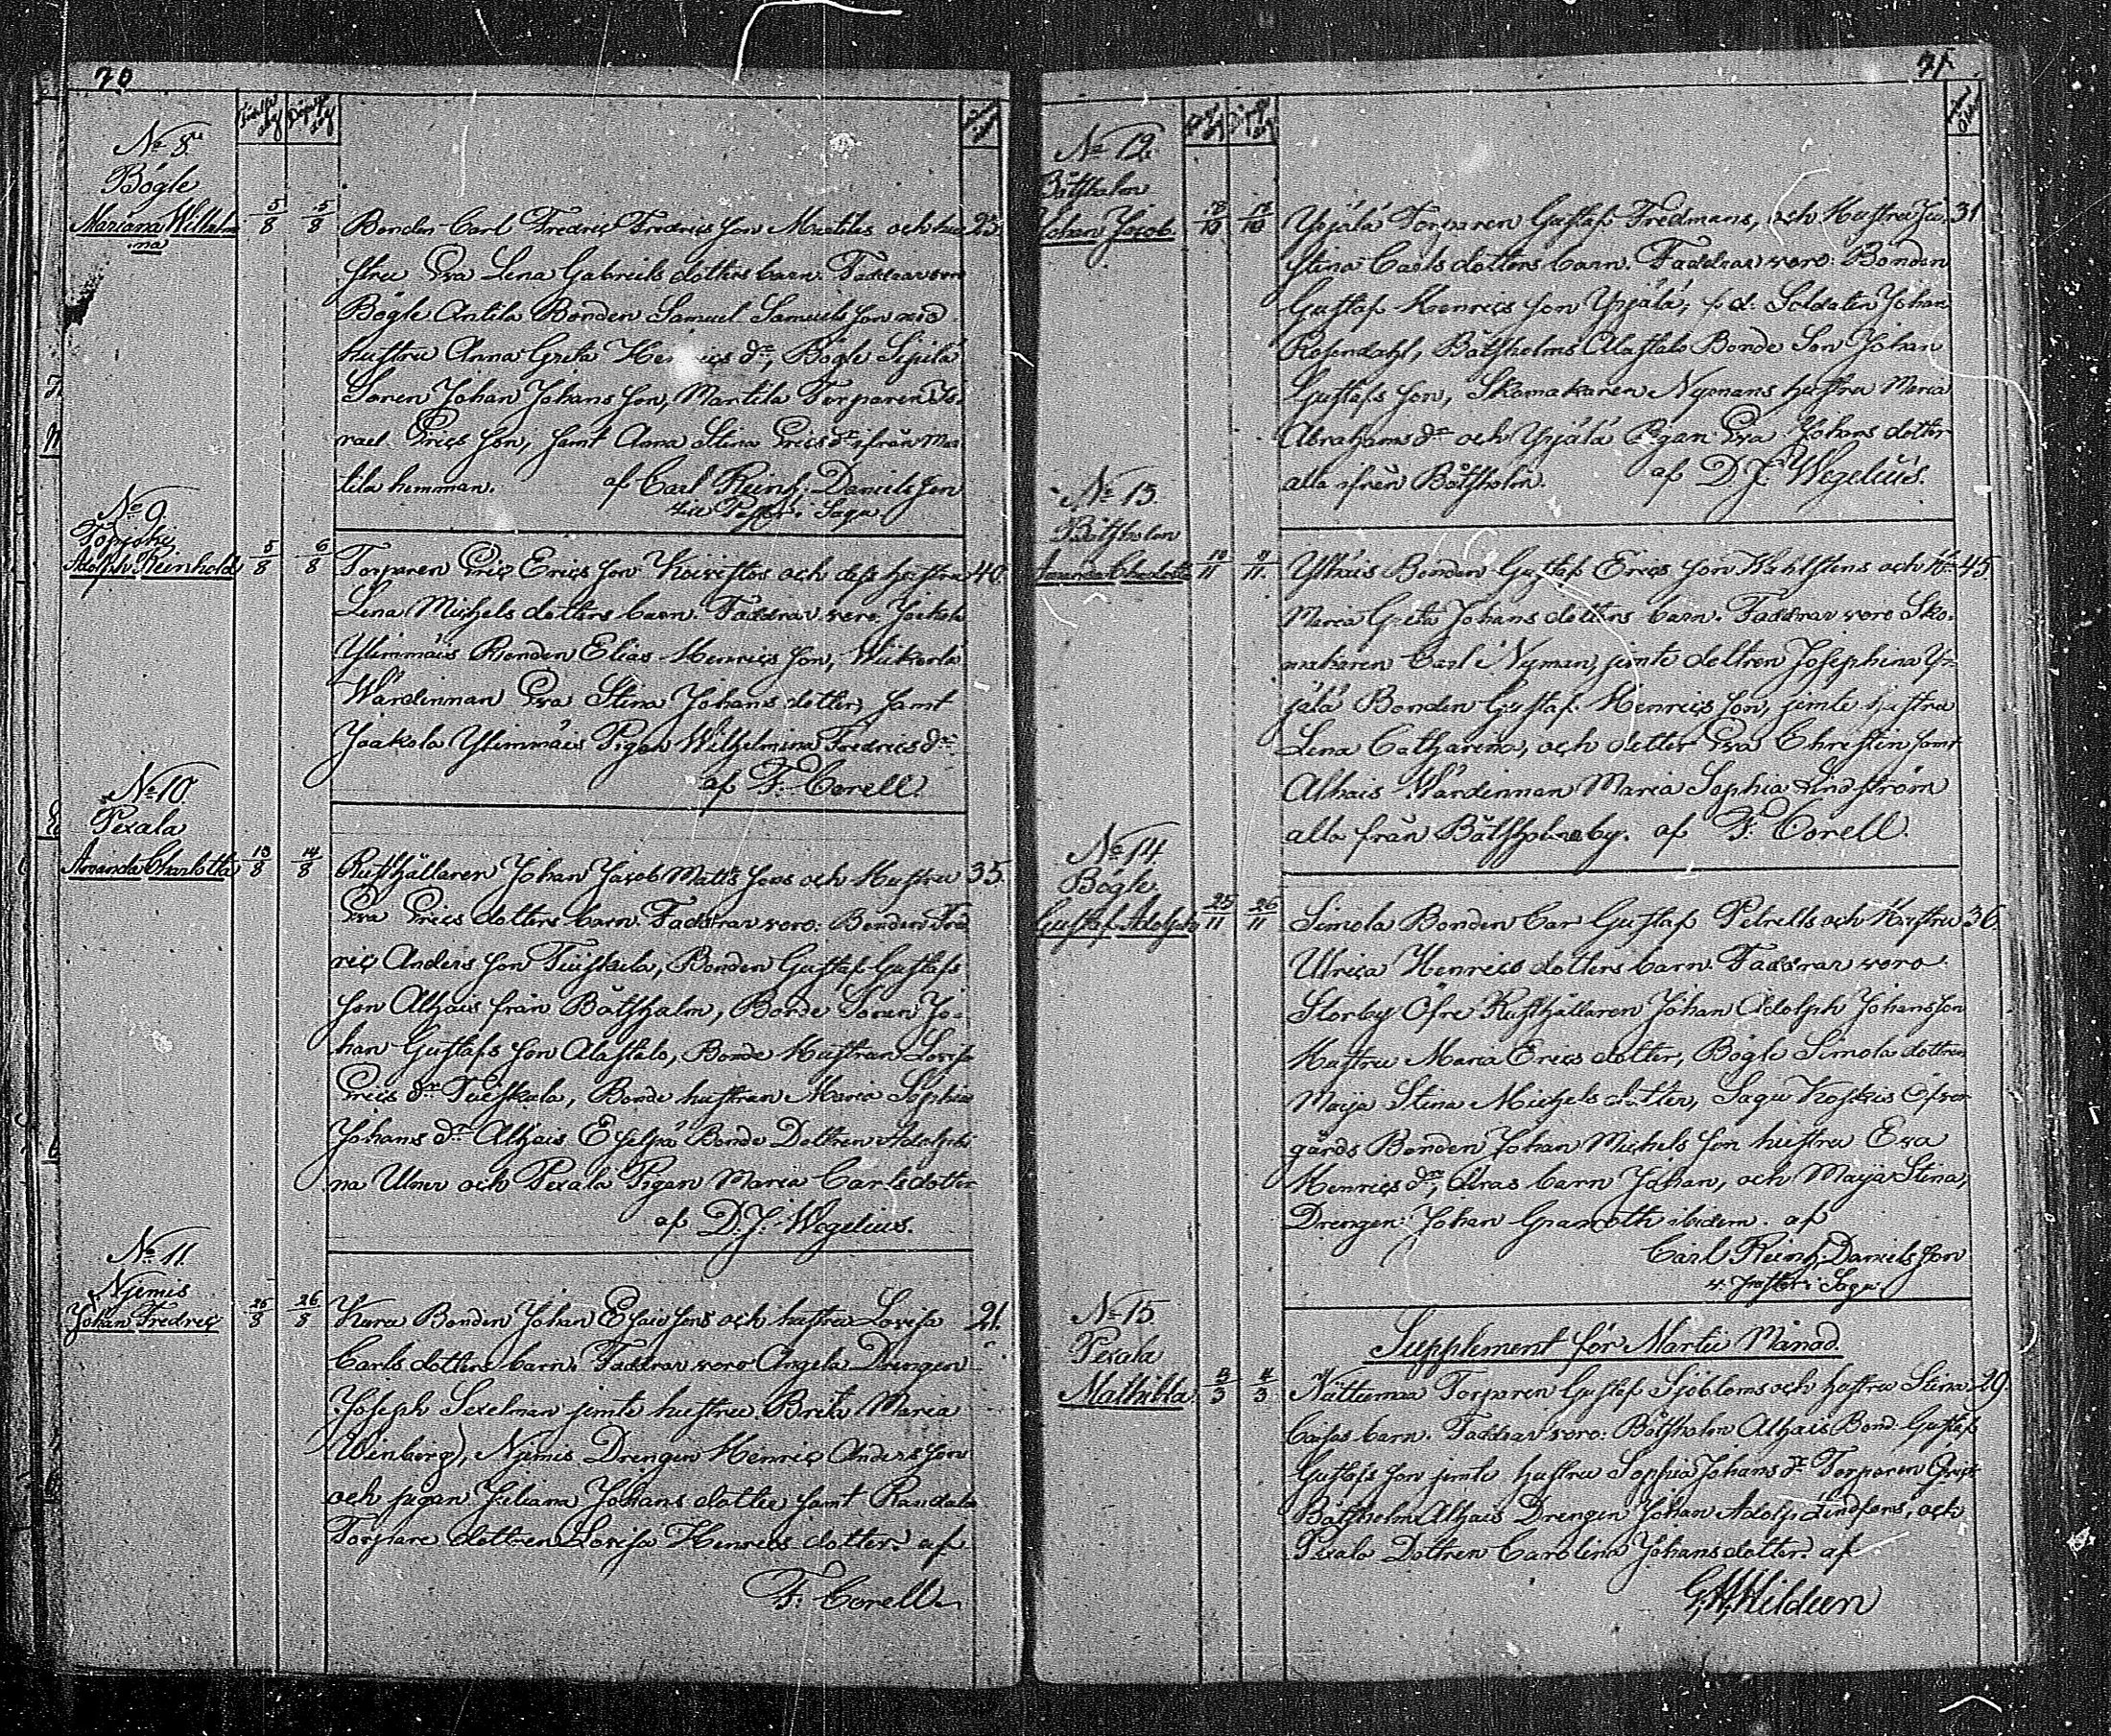 70
Födelse dag
Döpelse dag
No 8
Bögle
Mariana Wilhelm
ina
5/8
5/8
Bonden Carl Fredric Fredrics son Martilas och hu
25.
stru Eva Lena Gabriels dotters barn. Faddrar voro
Bögle Antila Bonden Samuel Samuels son med
hustru Anna Greta Henrics dr, Bögle Sipilä
Sonen Johan Johans son, Martila Torparen Is-
rael Erics son, samt Anna Stina Erics dr ifrån Mar
tila hemman. af Carl Reinh. Daniels son
v. Pastor i Sagu.
No 9.
Topjoki
Adolph Reinhold
5/8
6/8
Torparen Eric Erics son Koivistos och dess hustru
40.
Lena Michels dotters barn. Faddrar voro: Jackola
Ylimmäis Bonden Elias Henrics son, Wiikerlä
Wärdinnan Eva Stina Johans dotter, samt
Jaakola Ylimmäis Pigan Wilhelmina Fredrics dr
af F. Corell.
No 10.
Pexala
Amanda Charlotta
13/8
14/8
Rusthållaren Johan Jacob Matts sons och Hustru
35.
Eva Erics dotters barn. Faddrar voro: Bonden Fred
ric Anders son Tuiskula, Bonden Gustaf Gustafs
son Alhais från Båtsholm, Bonde Sonen Jo-
han Gustafs son Alastalo, Bonde Hustrun Lovisa
Erics dr Tuiskala, Bonde hustrun Maria Sophia
Johans dr Alhais Eskilpä Bonde Dottren Adolphi
na Ulner och Pexala Pigan Maria Carls dotter
af D. J. Wegelius.
No 11.
Njemis
Johan Fredric
25/8
26/8
Kura Bonden Johan Esaie sons och hustru Lovisa
21.
Carls dotters barn. Faddrar voro Angela Drengen
Joseph Sexelman jemte hustru Brita Maria
Winberg, Njemis Drengen Henric Anders son
och pigan Juliana Johans dotter samt Randala
Torpare dottren Lovisa Henrics dotter. af
F. Corell
71.
No 12.
Båtsholm
Johan Jacob
Yrjälä Torparen Gustaf Fredmans, och Hustru Ju-
31
stina Carls dotters barn. Faddrar voro: Bonden
Gustaf Henrics son Yrjälä, f. d. Soldaten Johan
Rosendahl, Båtsholms Alastalo Bonde Son Johan
Gustafs son, Skomakaren Nymans hustru Maria
Abrahams dr och Yrjälä Pigan Eva Johans dotter
alla ifrån Båtsholm. af D. J. Wegelius.
No 13.
Båtsholm
Amanda Charlotta
10/11
11/11.
Ylhäis Bonden Gustaf Erics son Wahlstens och Hu
45.
Maria Greta Johans dotters barn. Faddrar voro Sko-
makaren Carl Nyman, jemte dottren Josephina Yr-
jälä Bonden Gustaf Henrics son, jemte hustru
Lena Catharina, och dotter Eva Christin samt
Alhais Wärdinnan Maria Sophia Lindström
alla från Båtsholms by. af F. Corell.
No 14.
Bögle
Gustaf Adolph
25/11
26/11
Simola Bonden Car Gustaf Petrells och Hustru
36.
Ulrica Henrics dotters barn. Faddrar voro
Storby Öfre Rusthållaren Johan Adolph Johansson
Hustru Maria Erics dotter, Bögle Simola dottren
Maija Stina Michels dotter, Sagu Koskis Öfver
gårds Bonden Johan Michels son hustru Eva
Henrics dr, deras barn Johan, och Maija Stina,
Drengen Johan Granroth ibidem. af
Carl Reinh. Daniels son
v. Pastor i Sagu.
No 15.
Pexala
Mathilda
3/3
4/3
Supplement för Martii Månad.
Nättumaa Torparen Gustaf Sjöbloms och hustru Stina
29.
Caisas barn. Faddrar voro: Båtsholm Alhais Bond. Gustaf
Gustafs son jemte hustru Sophia Johans dr Torparen
Båtsholm Alhais Drengen Johan Adolph Lindfors, och
Pexala Dottren Carolina Johans dotter. af
G. A. Hildeen